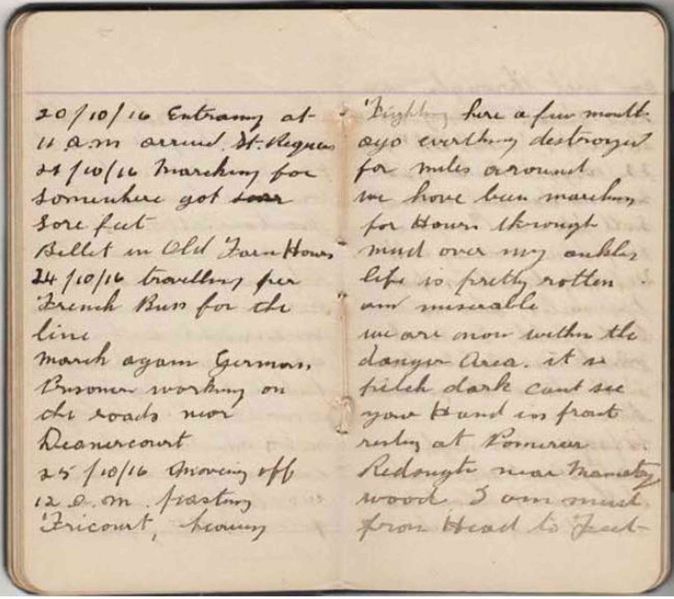 20/10/16 Entraining at
11 a.m arrived St. Requier
21/10/16 Marching for
Somewhere got
Sore feet
Billet in Old Farm House
24/10/16 travelling per
French Buss for the
line
March again German
Prisoner working on
the roads near
Deanercourt
25/10/16 Moving off
12 a.m. passing
Fricourt, heavy
Fighting here a few month
ago everthing destroyed
for miles arround
we have been marching
for Hours through
mud over my ankles
life is pretty rotten
am miserable
we are now within the
danger Area. it is
pitch dark cant see
your Hand in front
resting at Pomerier
Redought near Mametz
wood I am mud
from Head to Feet